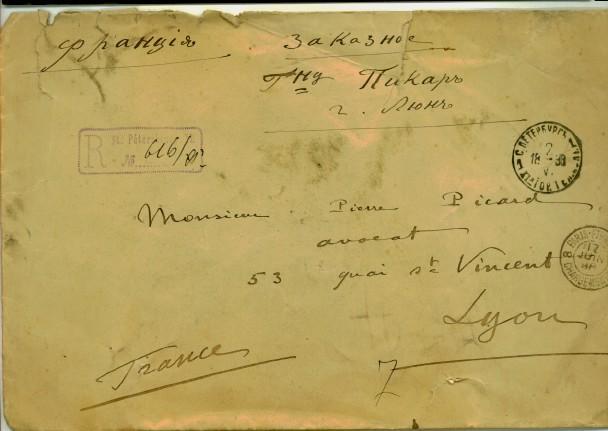 Франція Заказное
Гну Пикаръ
г. Люнъ
R St. Péters
№ 616/
С.ПЕТЕРБУРГЪ
2
18 - 99
V
Monsieur Pierre Picard
avocat
53 quai St Vincent
Lyon
France
7
8 PARIS
17